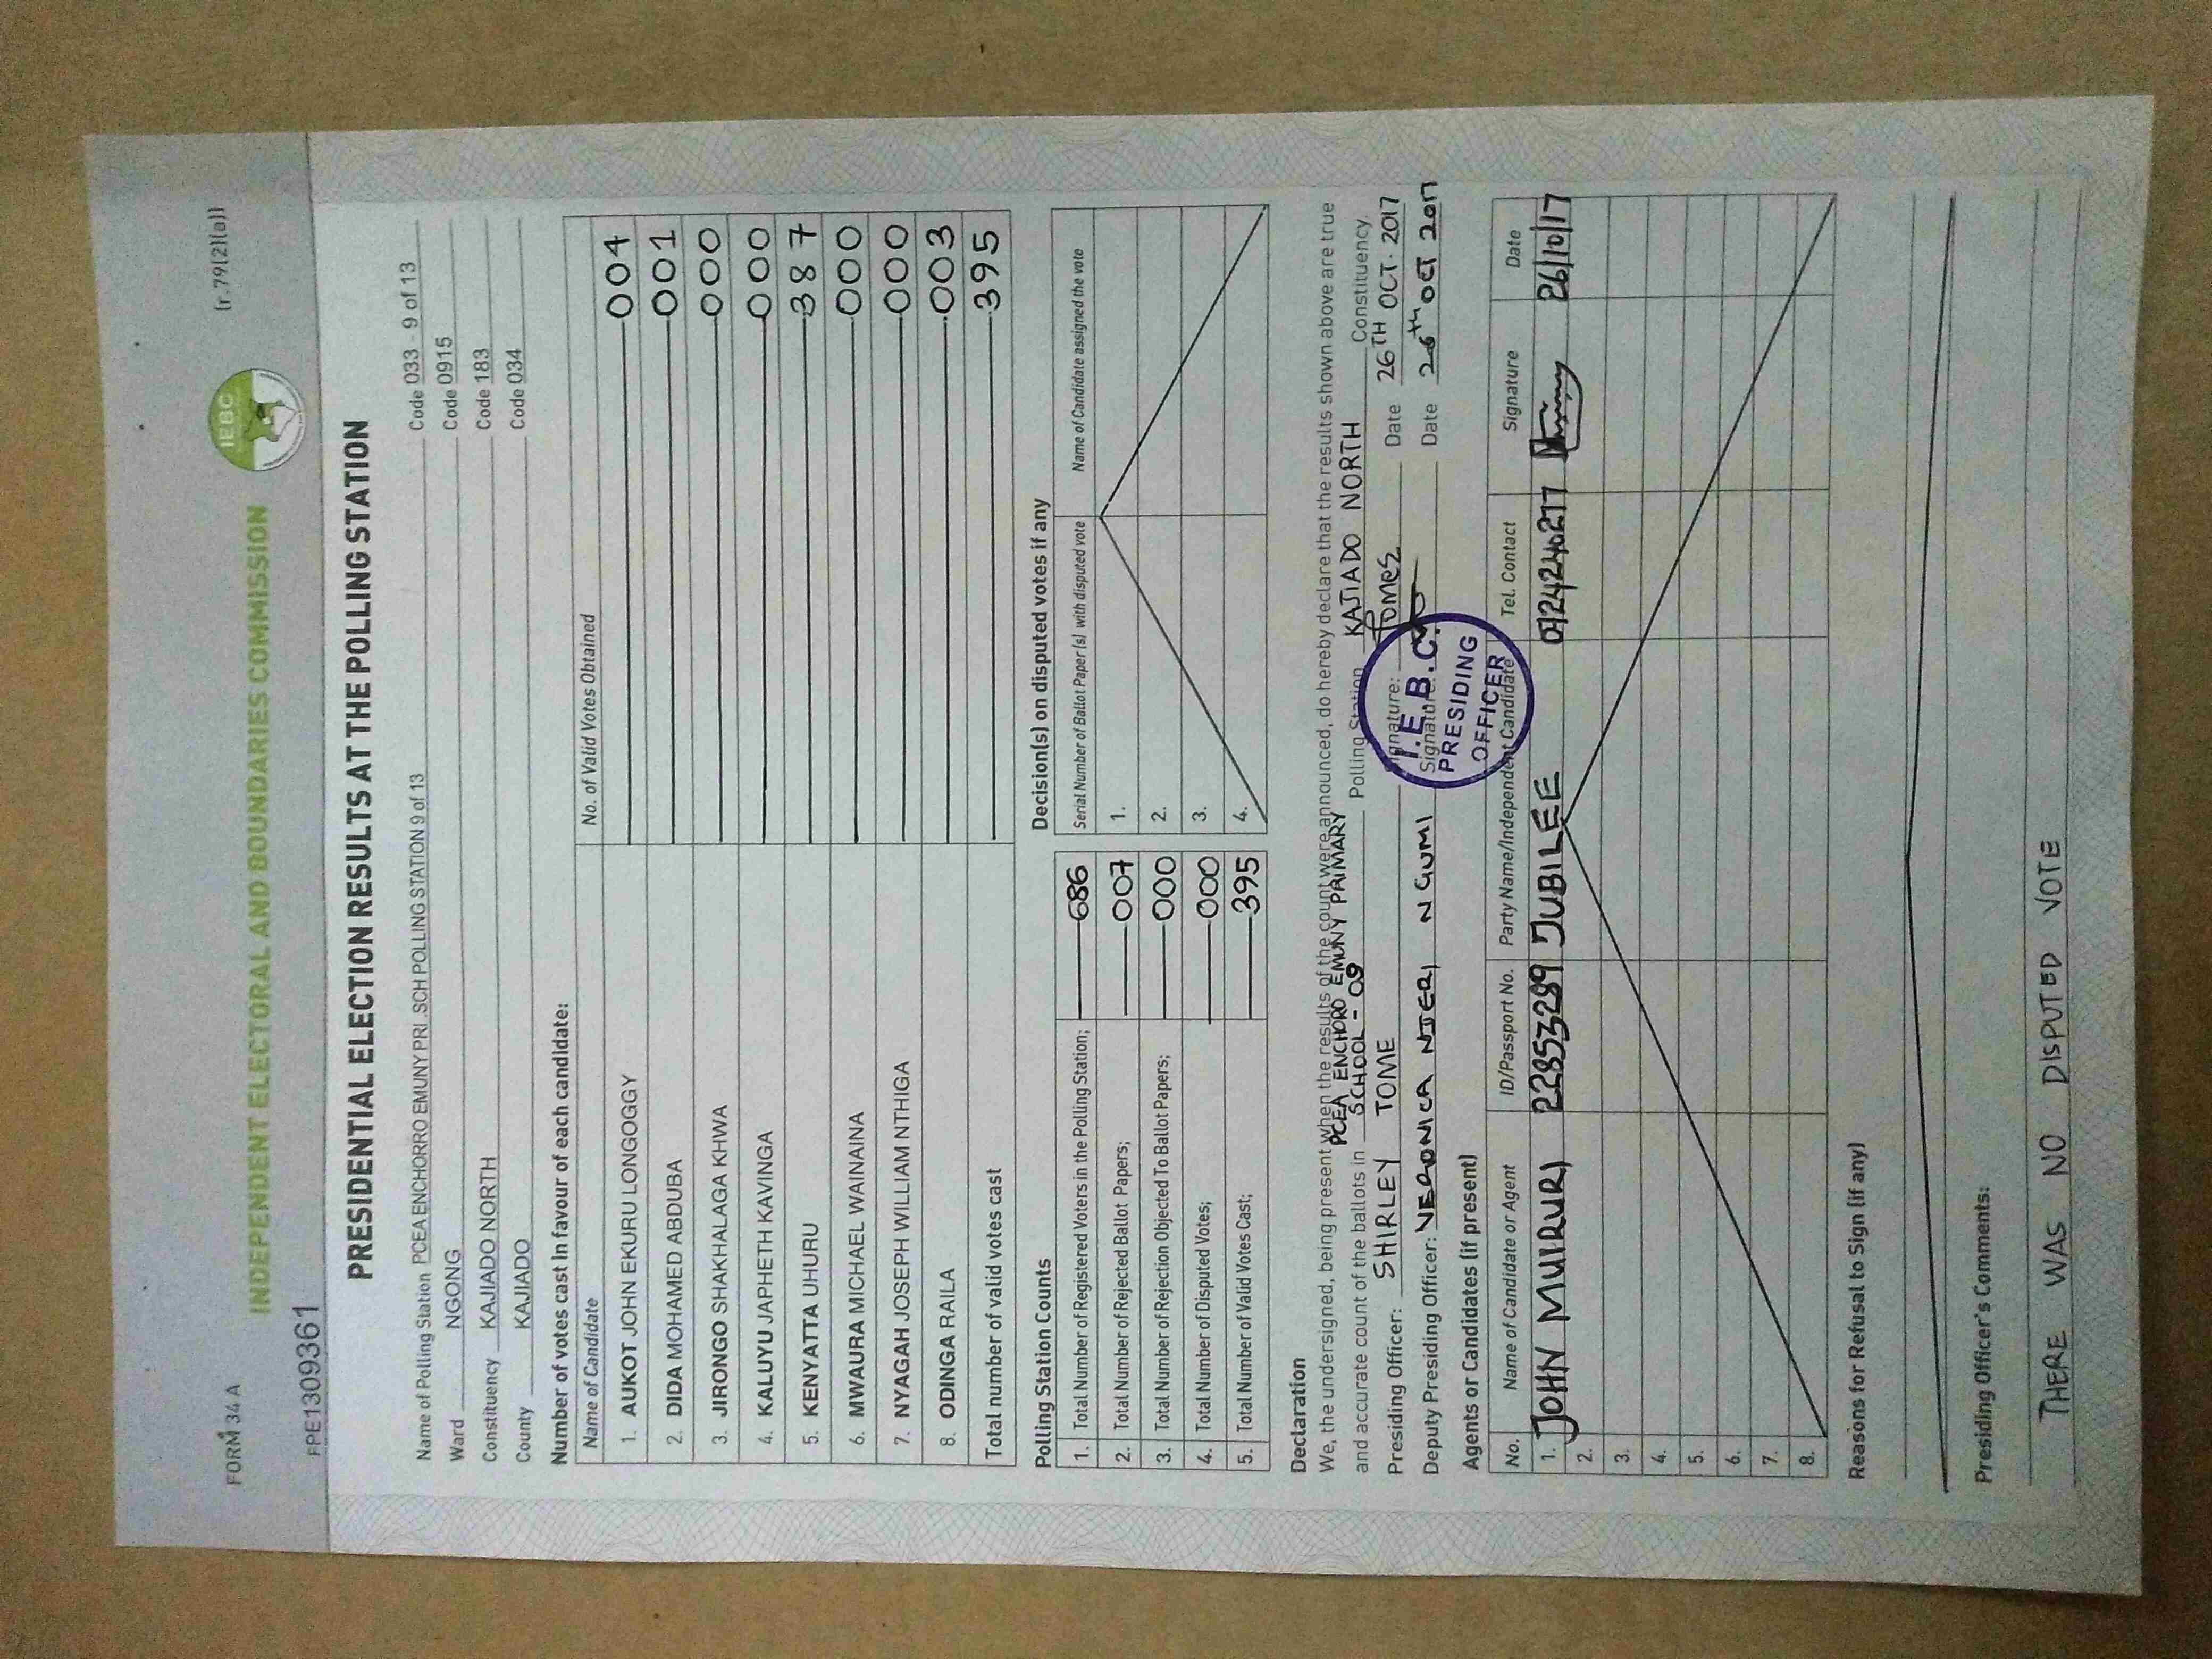 FORM 34 A
(r.79(2)(a))
INDEPENDENT ELECTORAL AND BOUNDARIES COMMISSION
IEBC
FPE1309361
PRESIDENTIAL ELECTION RESULTS AT THE POLLING STATION
Name of Polling Station PCEA ENCHORRO EMUNY PRI .SCH POLLING STATION 9 of 13 Code 033 - 9 of 13
Ward NGONG Code 0915
Constituency KAJIADO NORTH Code 183
County KAJIADO Code 034
Number of votes cast in favour of each candidate:
Name of Candidate No. of Valid Votes Obtained
1. AUKOT JOHN EKURU LONGOGGY 004
2. DIDA MOHAMED ABDUBA 001
3. JIRONGO SHAKHALAGA KHWA 000
4. KALUYU JAPHETH KAVINGA 000
5. KENYATTA UHURU 387
6. MWAURA MICHAEL WAINAINA 000
7. NYAGAH JOSEPH WILLIAM NTHIGA 000
8. ODINGA RAILA 003
Total number of valid votes cast 395
Polling Station Counts
1. Total Number of Registered Voters in the Polling Station; 686
2. Total Number of Rejected Ballot Papers; 007
3. Total Number of Rejection Objected To Ballot Papers; 000
4. Total Number of Disputed Votes; 000
5. Total Number of Valid Votes Cast; 395
Decision(s) on disputed votes if any
Serial Number of Ballot Paper (s) with disputed vote Name of Candidate assigned the vote
1.
2.
3.
4.
Declaration
We, the undersigned, being present when the results of the count were announced, do hereby declare that the results shown above are true
PCEA ENCHORO EMUNY PRIMARY
and accurate count of the ballots in SCHOOL - 09 Polling Station KAJIADO NORTH Constituency
Presiding Officer: SHIRLEY TOME Signature: Tomes Date 26TH OCT. 2017
Deputy Presiding Officer: VERONICA NJERI NGUMI Signature: Date 26th OCT 2017
I.E.B.C.
PRESIDING
OFFICER
Agents or Candidates (if present)
No. Name of Candidate or Agent ID/Passport No. Party Name/Independent Candidate Tel. Contact Signature Date
1. JOHN MUIRURI 22853289 JUBILEE 0724242077 26/10/17
2.
3.
4.
5.
6.
7.
8.
Reasons for Refusal to Sign (if any)
Presiding Officer's Comments:
THERE WAS NO DISPUTED VOTE